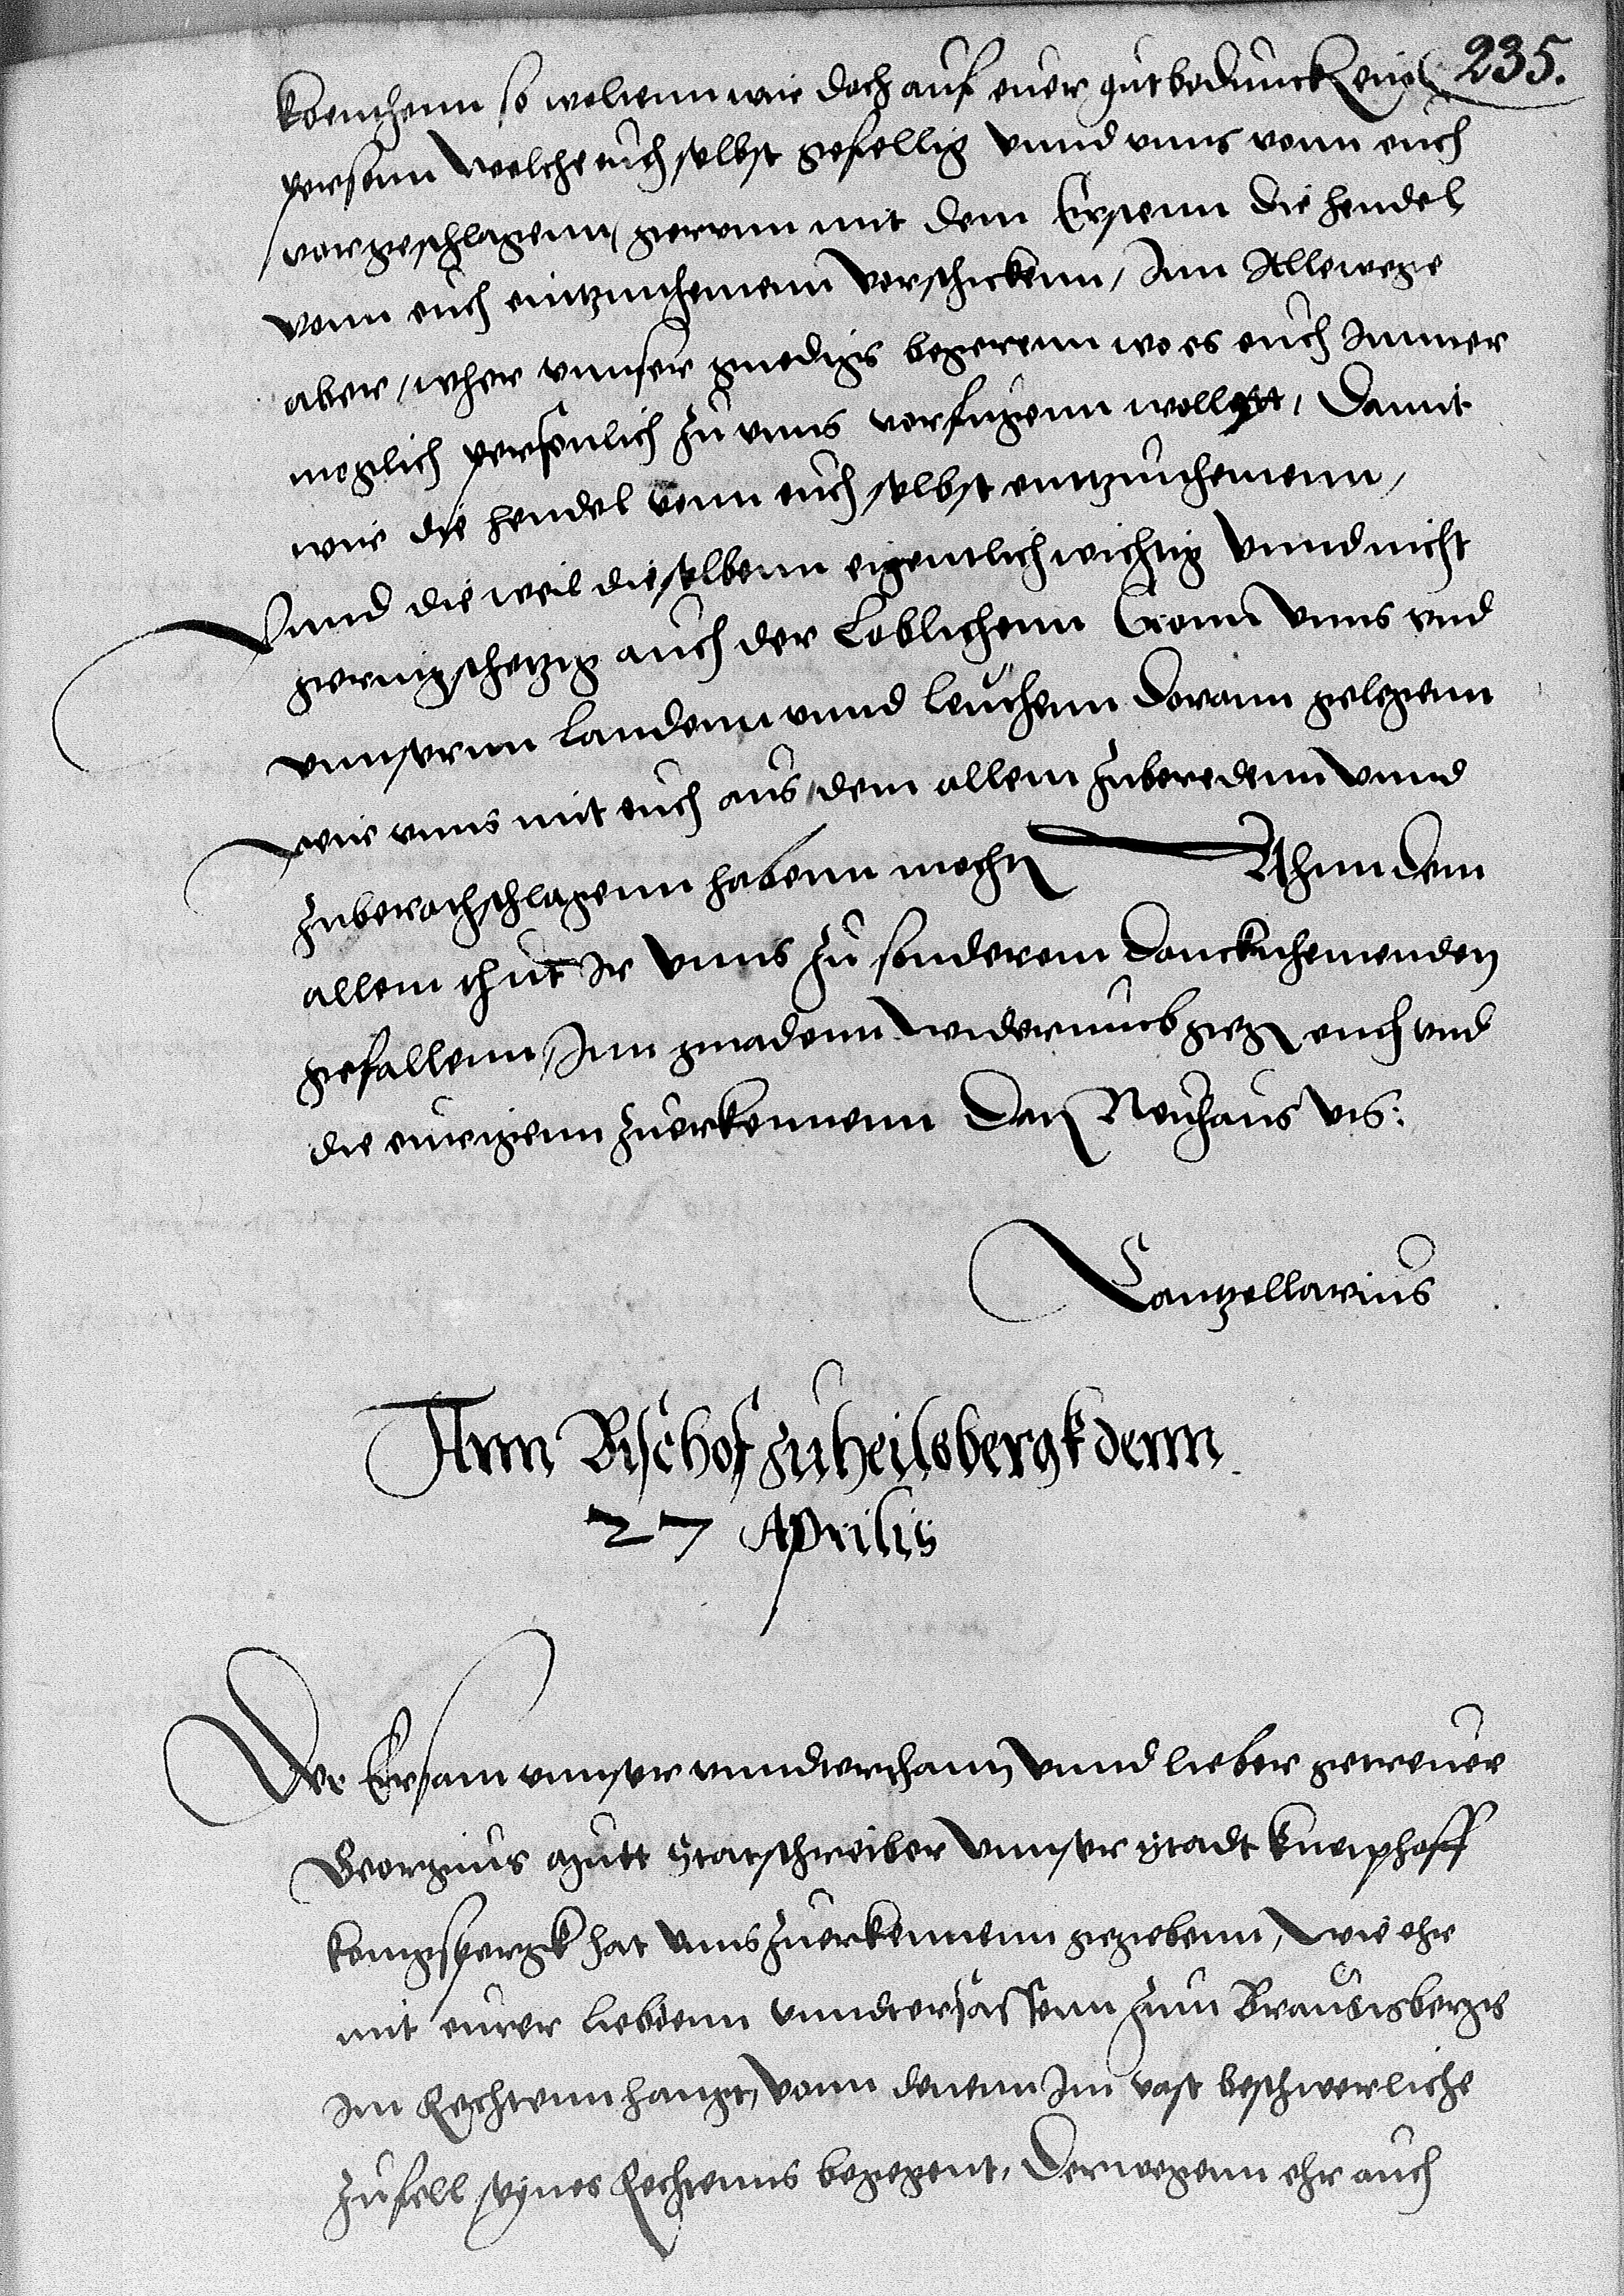 235.
konthenn so wolenn wir doch auf euer gutbeduncken eine
person welche euch selbst gefellig vnnd vnns vonn euch
vorgeschlagenn, gerenn mit dem Erstenn die hendel
vonn euch eintzunhemenn vorschickenn, Inn Allewege
aber, wher vnnser gnedigs begerenn wo es euch Immer
moglich personlich zu vnns vorfugenn wollett, damit
wir die hendel vonn euch selbst eintzunhemenn,
Vnnd die weil dieselbenn eigentlich wichtig vnnd nicht
geringschetzig auch der Loblichenn Cronn vnns vnd
vnnserenn Landenn vnnd Leuthenn doran gelegenn
wir vnns mit euch aus dem allem zuberedenn vnnd
zuberathschlagenn habenn mochten Ahnn dem
allem thut Ir vnns zu sonderem danckneهmenden
gefallenn, Inn gnadenn widerumb gegen euch vnd
die eurigenn zuerkennenn Datum Neuhaus vts:
Cantzellarius
Ann Bischof zu heilsbergk denn
27 Aprilis
Der Ersam vnnser vnnderthann vnnd lieber getreuer
Georgius Statschreiber vnnser Stadt kneiphoff
konigspergk hat vnns zuerkennenn gegebenn, wie ehr
mit eurer Liebdenn vnndersassenn zum Braunsberge
Im Rechtenn hangt, vonn denenn Im vast beschwerliche
zufell seines Rechtenns begegent, Derwegenn ehr auch